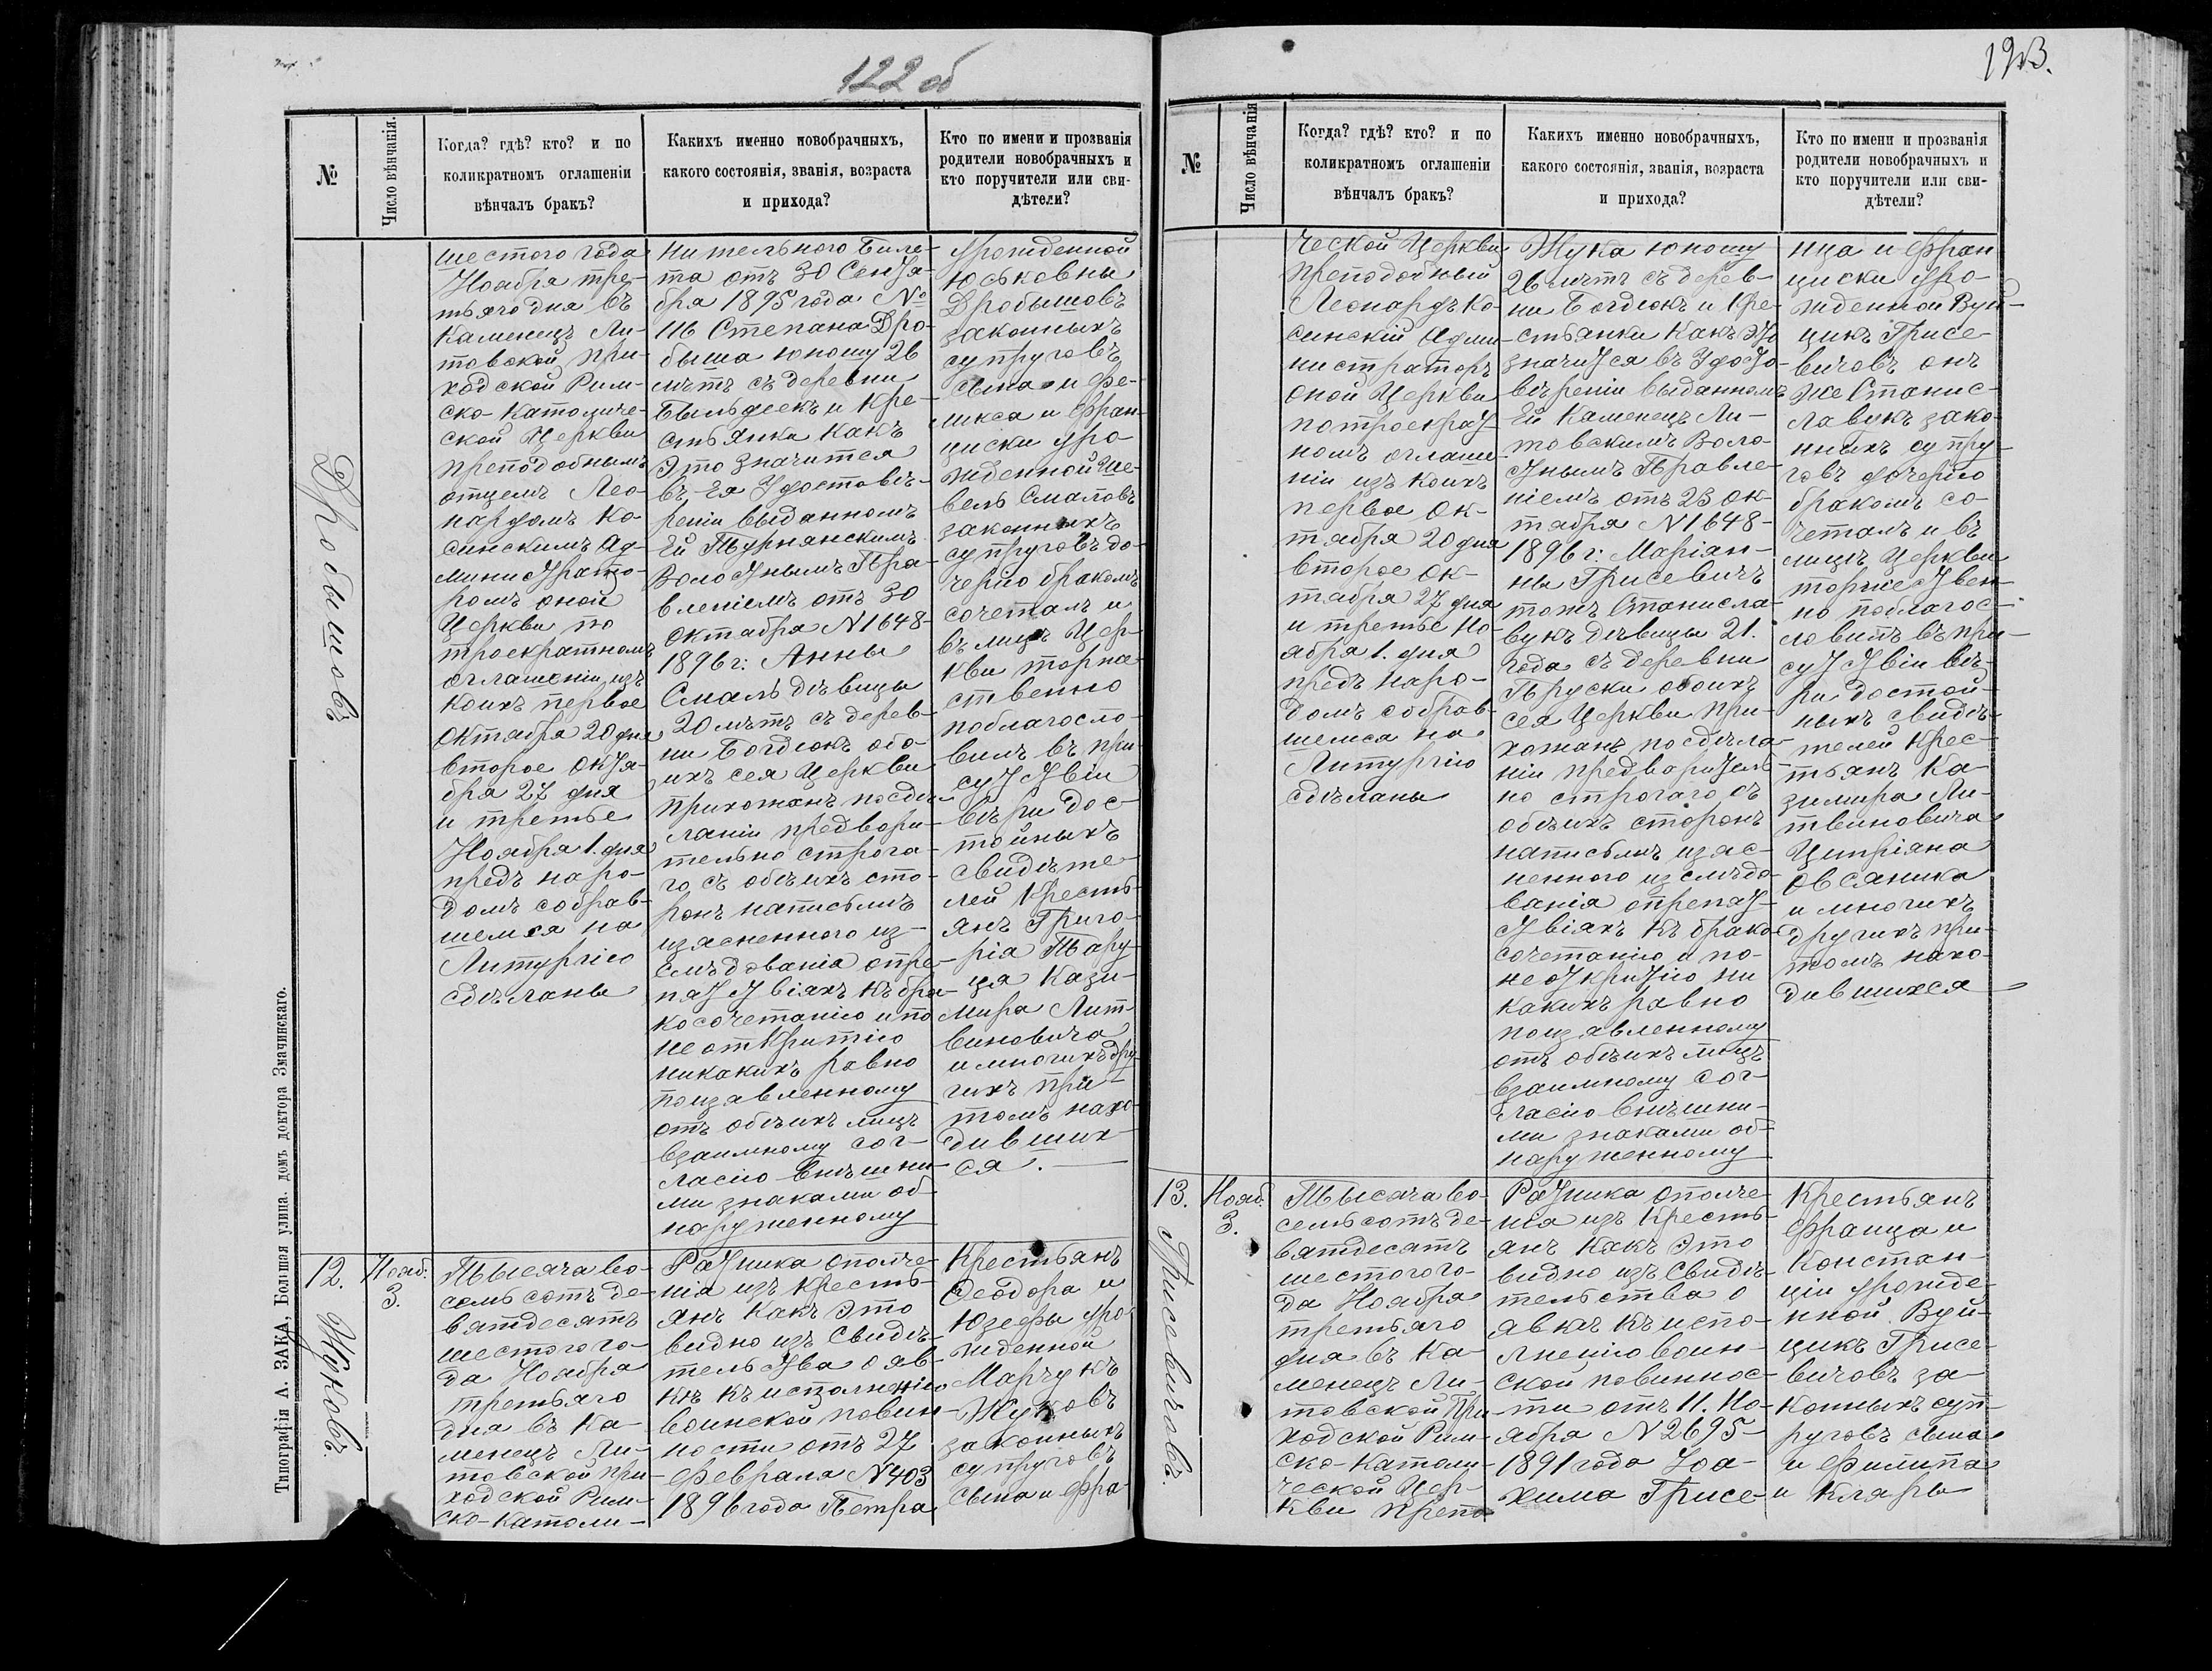 122 об
№
Число вѣнчанія.
Когда? гдѣ? кто? и по
коликратномъ оглашеніи
вѣнчалъ бракъ?
Какихъ именно новобрачныхъ,
какого состоянія, званія, возраста
и прихода?
Кто по имени и прозванія
родители новобрачныхъ и
кто поручители или сви-
дѣтели?
Дробышовъ
шестого года
Ноября тре-
тьяго дня въ
Каменецъ Ли-
товской При-
ходской Рим-
ско-Католиче-
ской Церкви
преподобнымъ
отцемъ Лео-
нардомъ Ко-
синскимъ Ад-
министрато-
ромъ оной
Церкви по
троекратномъ
оглашеніи изъ
коихъ первое
Октября 20 дня
второе Октя-
бря 27 дня
и третье
Ноября 1. дня
предъ наро-
домъ собрав-
шемся на
Литургію
сдѣланы
нительного Биле-
та отъ 30 Сентя-
бря 1895 года №
116 Степана Дро-
быша юношу 26
лѣтъ съ деревни
Быльдеекъ и Кре-
стьянка Какъ
Это Значится
въ Ея Удостовѣ-
реніи выданномъ
Ей Турнянскимъ
Волостнымъ Пра-
вленіемъ отъ 30
Октября N 1648-
1896 г: Анны
Смаль дѣвицы
20 лѣтъ съ дерев-
ни Богдюкъ обо-
ихъ сея Церкви
прихожанъ по сдѣ-
ланіи предвори-
тельно строга-
го съ обѣихъ сто-
ронъ написьмѣ
изясненного из-
слѣдованія опре-
пятствіяхъ къ бра-
косочетанію и по
неоткритію
никакихъ равно
поизявленному
отъ обѣихъ лицъ
взаимному сог-
ласію внѣшни-
ми знаками об-
наруженному
урожденной
Юськовны
Дробышовъ
законныхъ
супруговъ
сына и Фе-
ликса и Фран-
циски уро-
жденной Ше-
вель Смаловъ
законныхъ
супруговъ до-
черію бракомъ
сочеталъ и
въ лицѣ Цер-
кви торже-
ственно
поблагосло-
вилъ въ при-
сутствіи
вѣри дос-
тойныхъ
Свидѣте-
лей Кресть-
янъ Григо-
рія Тару-
ця Кази-
мира Лит-
виновича
и многихъ дру-
гихъ при-
томъ нахо-
дивших-
ся.
12.
Жуковъ.
Нояб:
3.
Тысяча во-
семь сотъ де-
вятдесятъ
шестого го-
да Ноября
третьяго
дня въ Ка-
менецъ Ли-
товской При-
ходской Рим-
ско-Католи-
Ратника ополче-
нія изъ Кресть-
янъ Какъ Это
видно изъ Свидѣ-
тельства о яв-
кѣ къ исполненію
воинской повин-
ности отъ 27
Февраля N 403
1896 года Петра
Крестьянъ
Ѳеодора и
Юзефы уро-
жденной
Марчукъ
Жуковъ
законныхъ
супруговъ
сына и Фра-
Типографія А. ЗАКА, Большая улица. домъ доктора Змачинскаго.
123.
№
Число вѣнчанія
Когда? гдѣ? кто? и по
коликратномъ оглашеніи
вѣнчалъ бракъ?
Какихъ именно новобрачныхъ,
какого состоянія, званія, возраста
и прихода?
Кто по имени и прозванія
родители новобрачныхъ и
кто поручители или сви-
дѣтели?
ческой Церкви
преподобный
Леонардъ Ко-
синскій Адми-
нистраторъ
оной Церкви
потроекрат
номъ оглаше-
ніи изъ коихъ
первое Ок-
тября 20 дня
второе Ок-
тября 27 дня
и третье Но-
ября 1. дня
предъ наро-
домъ собрав-
шемся на
Литургію
сдѣланы
Жука юношу
26 лѣтъ съ дерев-
ни Богдюкъ и Кре-
стьянки Какъ Это
значится въ Удосто-
вѣреніи выданномъ
Ей Каменецъ Ли-
товскимъ Воло-
стнымъ Правле-
ніемъ отъ 23 Ок-
тября N 1648-
1896 г: Маріан-
ны Грисевичъ
тожъ Станисла-
вукъ дѣвицы 21.
года съ деревни
Пруски обоихъ
сея Церкви при-
хожанъ по сдѣла-
ніи предворитель-
но строгаго съ
обѣихъ сторонъ
написьмѣ изяс-
ненного изслѣдо-
ванія опрепят-
ствіяхъ къ брако-
сочетанію и по-
неоткритію ни
какихъ равно
поизявленному
отъ обѣихъ лицъ
взаимному сог-
ласію внѣшни-
ми знаками об-
наруженному
нца и Фран
циски уро-
жденной Вуй-
цикъ Грисе-
вичовъ онъ
же Станис-
лавукъ зако-
нныхъ супру-
говъ дочерію
бракомъ со-
четалъ и въ
лицѣ Церкви
торжествен-
но поблагос-
ловилъ въ при-
сутствіи вѣ-
ри достой-
ныхъ свидѣ-
телей Крес-
тьянъ Ка-
зимира Ли-
твиновича
Ципріяна
Овсяника
и многихъ
другихъ при-
томъ нахо-
дившихся
13.
Грисевичовъ.
Нояб.
3.
Тысяча во-
семьсотъ де-
вятдесятъ
шестого го-
да Ноября
третьяго
дня въ Ка-
менецъ Ли-
товской При-
ходской Рим-
ско-Католи-
ческой Цер-
кви Препо
Ратника ополче-
нія изъ Кресть-
янъ Какъ Это
видно изъ Свидѣ-
тельства о
явкѣ къ испо-
лненію воин-
ской повиннос-
ти отъ 11. Но-
ября N 2695
1891 года Іоа-
хима Грисе-
Крестьянъ
Франца и
Констан-
ціи урожде-
нной Вуй-
цикъ Грисе-
вичовъ за-
конныхъ суп-
руговъ сына
и Филипа
и Кляры